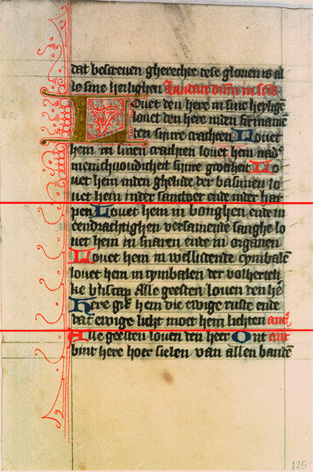 dat bescreuen gherechte dese glorien is al
lo sine heilighen Laudate dominum in sanctis
Louet den here in sine heylige
louet den here inden firmament
ten sijnre crachten Louet
hem in sinen crachten louet hem nad
menichuoudicheit sijnre groetheit Lo
uet hem inden ghelude der basunen lo
uet hem inder santoer ende inder har
pen Louet hem in bonghen ende in
eendrachtighen versamende sanghe lo
uet hem in snaren ende in orghanen
Louet hem in welludende cymbalen
louet hem in cymbalen der volherteli
ke bliscap Alle geesten louen den here
Here gif hem die ewige ruste ende
dat ewige licht moet hem lichten ant
Alle geesten louen den heer Ont ant
bint here hoer sielen van allen banden
125